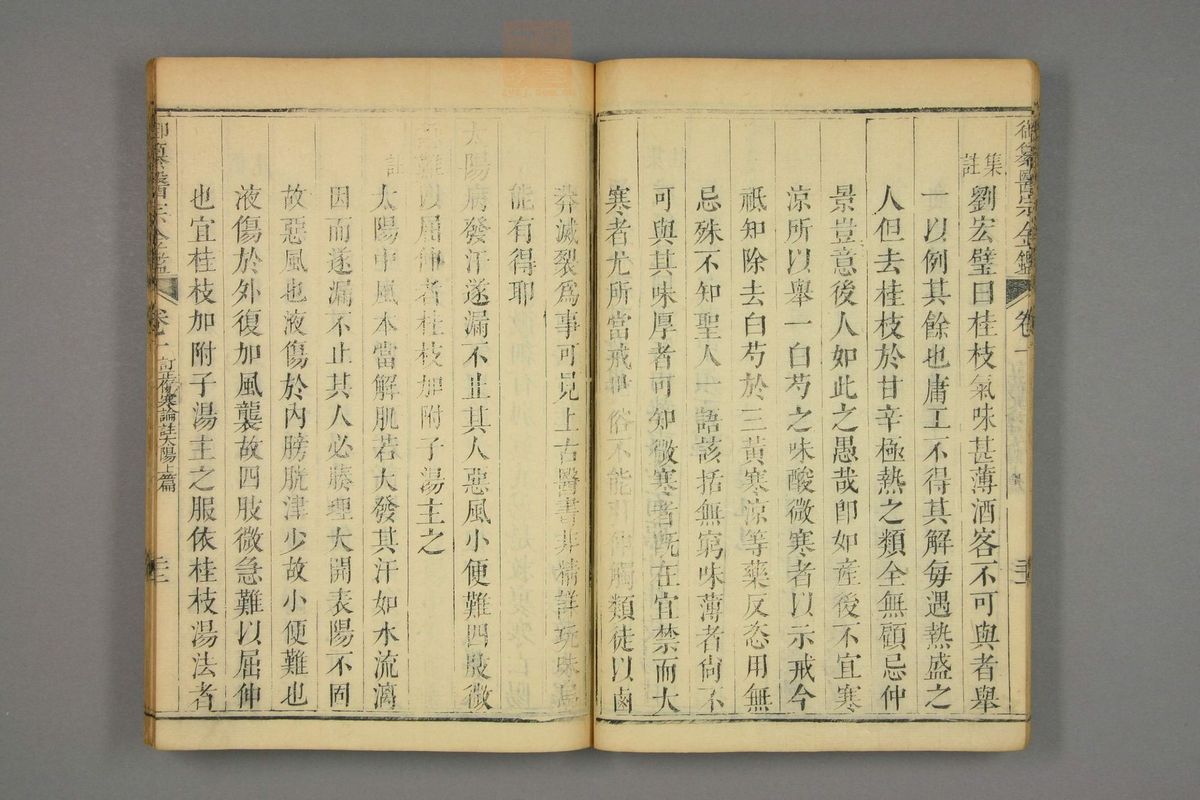 御纂醫宗金鑑 卷一
集註 劉宏璧曰桂枝氣味甚薄酒客不可與者舉
一以例其餘也庸工不得其解每遇熱盛之
人但去桂枝於甘辛極熱之類全無顧忌仲
景豈意後人如此之愚哉卽如産後不宜寒
涼所以舉一白芍之味酸微寒者以示戒今
祇知除去白芍於三黃寒涼等藥反恣用無
忌殊不知聖人一語該括無窮味薄者尙不
可與其味厚者可知微寒者旣在宜禁而大
寒者尤所當戒 俗不能 觸類徒以鹵
莽滅裂爲事可見上古醫書非精詳玩味烏
能有得耶
太陽病發汗遂漏不止其人惡風小便難四肢微
急難以屈伸者桂枝加附子湯主之
註 太陽中風本當解肌若大發其汗如水流漓
因而遂漏不止其人必腠理大開表陽不固
故惡風也液傷於內膀胱津少故小便難也
液傷於外復加風襲故四肢微急難以屈伸
也宜桂枝加附子湯主之服依桂枝湯法者
御纂醫宗金鑑 卷一 訂正傷寒論註太陽上篇